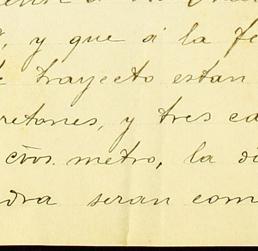 y que á la fe
trayecto estan
retones, y tres ca
ctvos. metro, la di
dra seran com